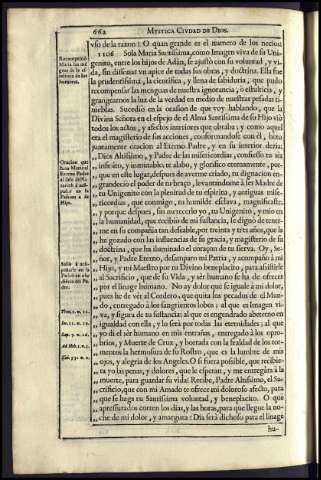 662 MYSTICA CIVDAD DE DIOS.
vso de la razon! O quan grande es el numero de los necios!
1106 Sola Maria Santissima, como Imagen viva de su Vni-
genito, entre los hijos de Adàn, se ajustò con su voluntad, y vi-
da, sin disonar vn apice de todas sus obras, y doctrina. Ella fue
la prudentissima, la cientifica, y llena de sabiduria, que pudo
recompensar las menguas de nuestra ignorancia, ò estulticia, y
grangearnos la luz de la verdad en medio de nuestras pesadas ti-
nieblas. Sucediò en la ocasion de que voy hablando, que la
Divina Señora en el espejo de el Alma Santissima de su Hijo viò
todos los actos, y afectos interiores que obraba; y como aquel
era el magisterio de sus acciones, conformandose con èl, hizo
juntamente oracion al Eterno Padre, y en su interior dezia:
Dios Altissimo, y Padre de las misericordias, confiesso tu ser
infinito, è inmutable; te alabo, y glorifico eternamente, por-
que en este lugar, despues de averme criado, tu dignacion en-
grandeciò el poder de tu braço, levantandome à ser Madre de
tu Vnigenito con la plenitud de tu espiritu, y antiguas mise-
ricordias, que conmigo, tu humilde esclava, magnificaste;
y porque despues, sin merecerlo yo, tu Vnigenito, y mio en
la humanidad, que recibiò de mi sustancia, se dignò de tener-
me en su compañia tan deseable, por treinta y tres años, que la
he gozado con las influencias de su gracia, y magisterio de su
doctrina, que ha iluminado el coraçon de tu sierva. Oy, Se-
ñor, y Padre Eterno, desamparo mi Patria, y acompaño à mi
Hijo, y mi Maestro por tu Divino beneplacito, para assistirle
al Sacrificio, que de su Vida, y sèr humano se ha de ofrecer
por el linage humano. No ay dolor que se iguale à mi dolor,
pues he de vèr al Cordero, que quita los pecados de el Mun-
do, entregado à los sangrientos lobos; al que es Imagen vi-
va, y figura de tu sustancia; al que es engendrado abeterno en
igualdad con ella, y lo serà por todas las eternidades; al que
yo dì el sèr humano en mis entrañas, entregado à los opro-
brios, y Muerte de Cruz, y borrada con la fealdad de los tor-
mentos la hermosura de su Rostro, que es la lumbre de mis
ojos, y alegria de los Angeles. O si fuera possible, que recibie-
ra yo las penas, y dolores, que le esperan, y me entregàra à la
muerte, para guardar su vida! Recibe, Padre Altissimo, el Sa-
crificio, que con mi Amado te ofrece mi doloroso afecto, para
que se haga tu Santissima voluntad, y beneplacito. O què
apresurados corren los dias, y las horas, para que llegue la no-
che de mi dolor, y amargura! Dia serà dichoso para el linage
hu-